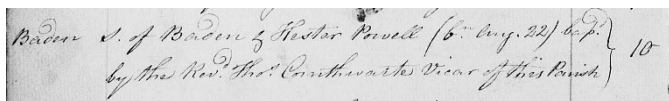 Baden S. of Baden & Hester Powell (bn. Aug. 22) bapd. 10
by the Revd. Thos. Cornthwaite Vicar of this Parish